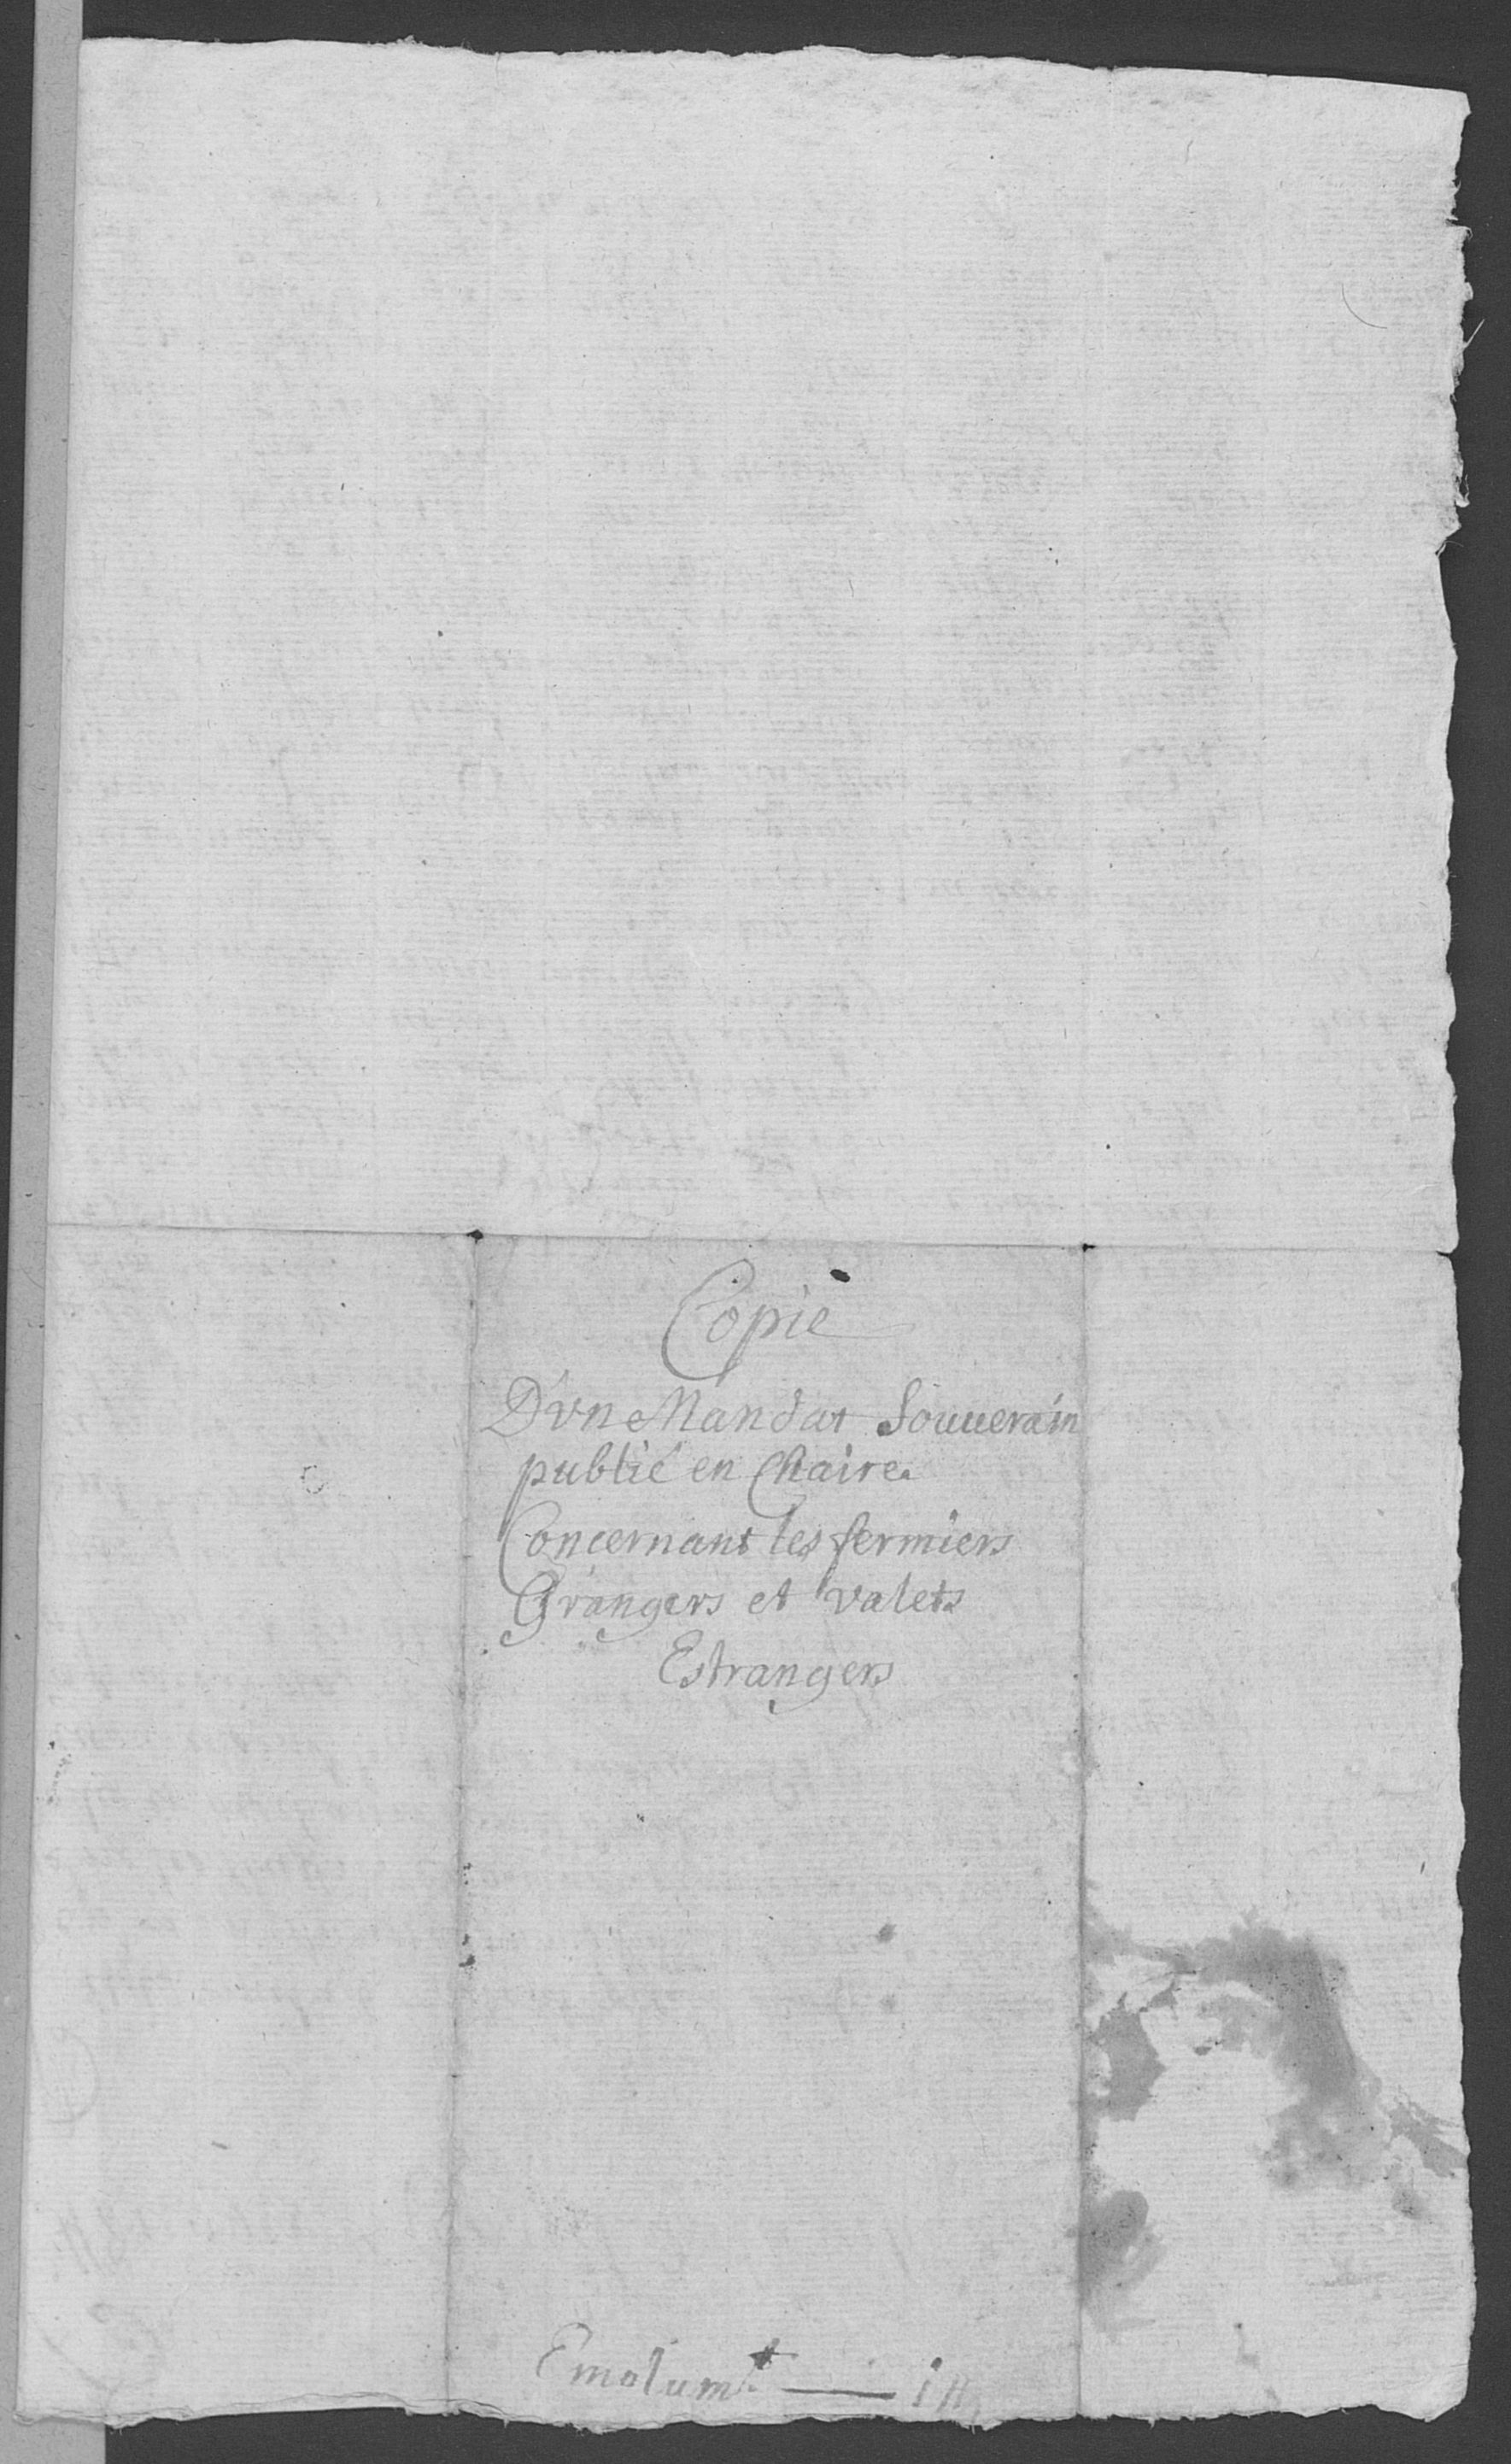 Copie
D'vn Mandat Souuerain
publié en Chaire.
Concernant les fermiers
Grangers et valets
Estrangers
Emolumt. —— 1 ₶